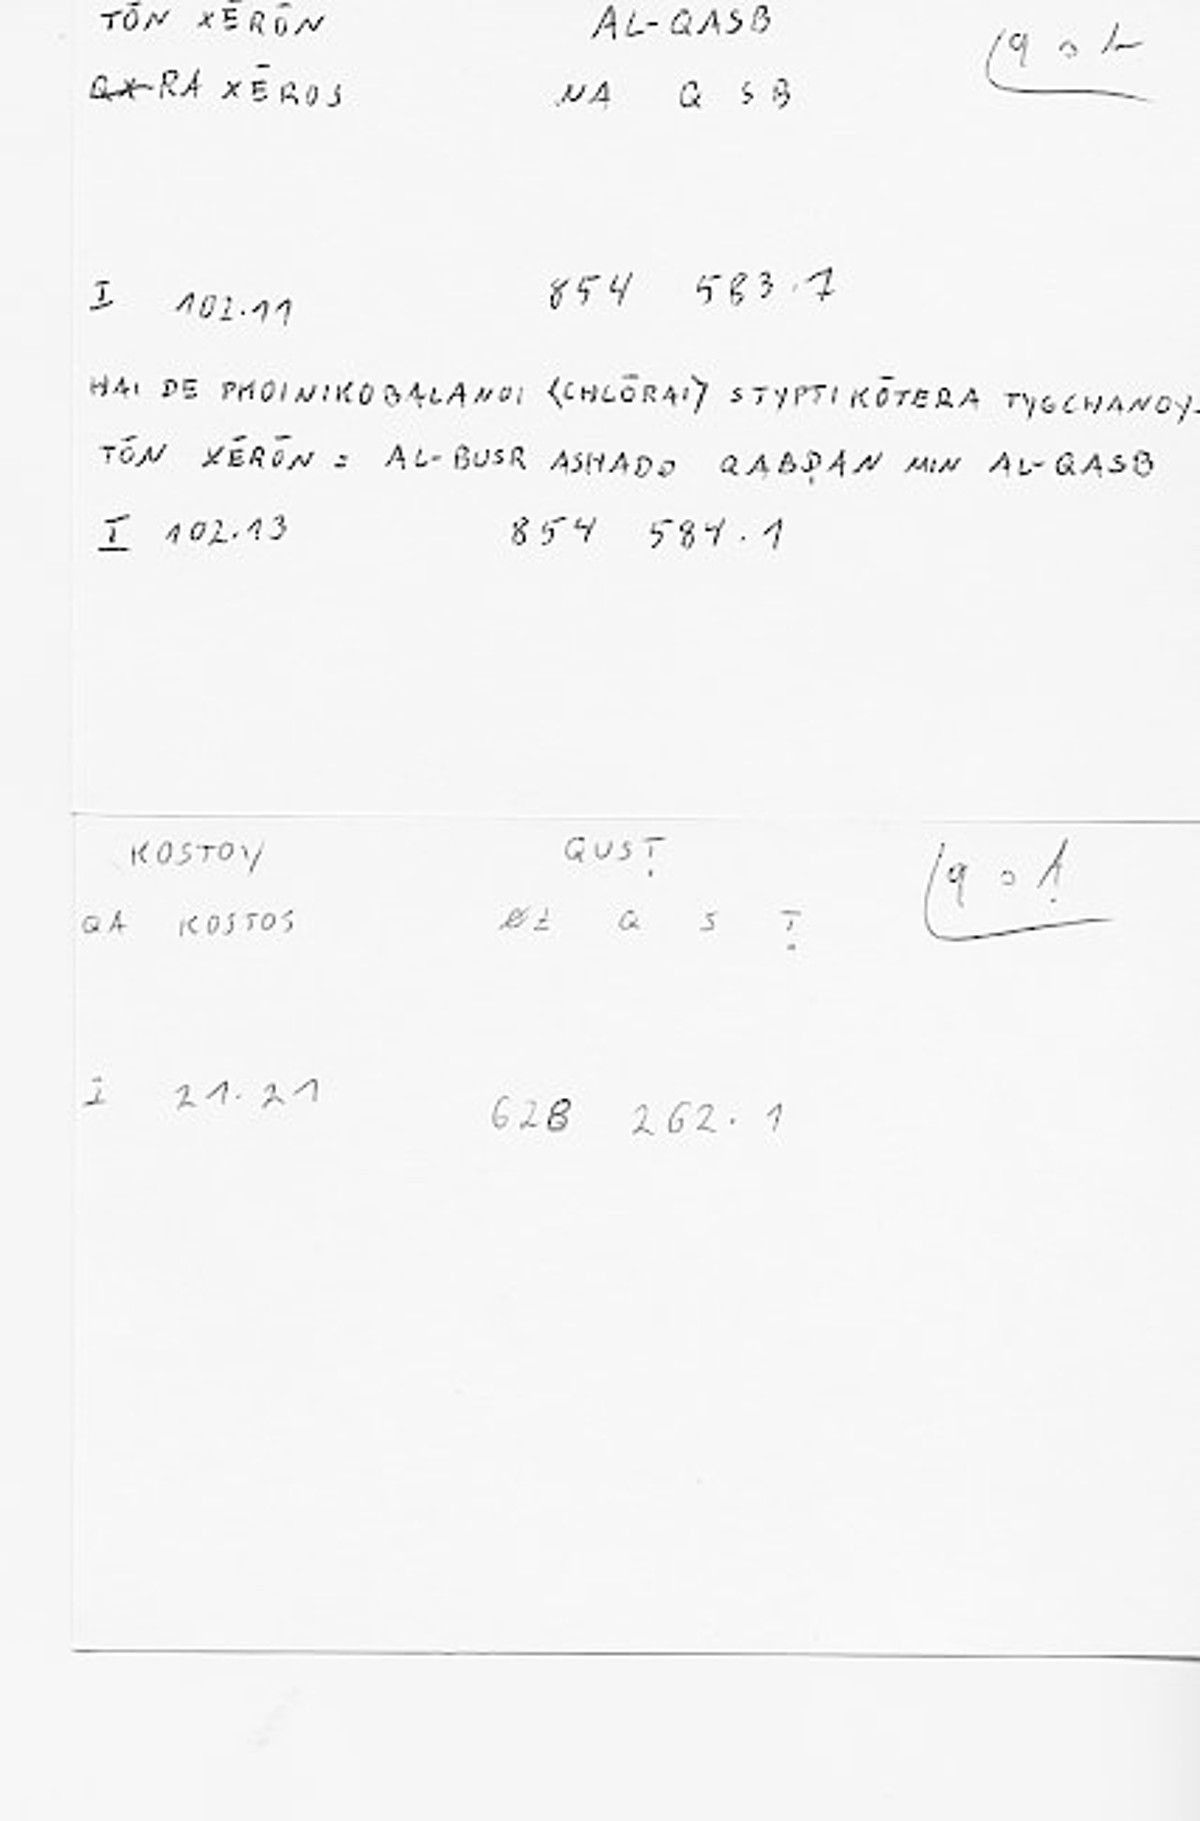 TŌN XĒRŌN AL-QASB
RA XĒROS NA Q S B
I 102.11 854 583.7
HAI DE PHOINIKOBALANOI <CHLŌRAI> STYPTIKŌTERA TYGCHANOY
TŌN XĒRŌN = AL-BUSR ASHADD QABḌAN MIN AL-QASB
I 102.13 854 584.1
KOSTOY QUSṬ
QA KOSTOS Q S Ṭ
I 21.21 628 262.1